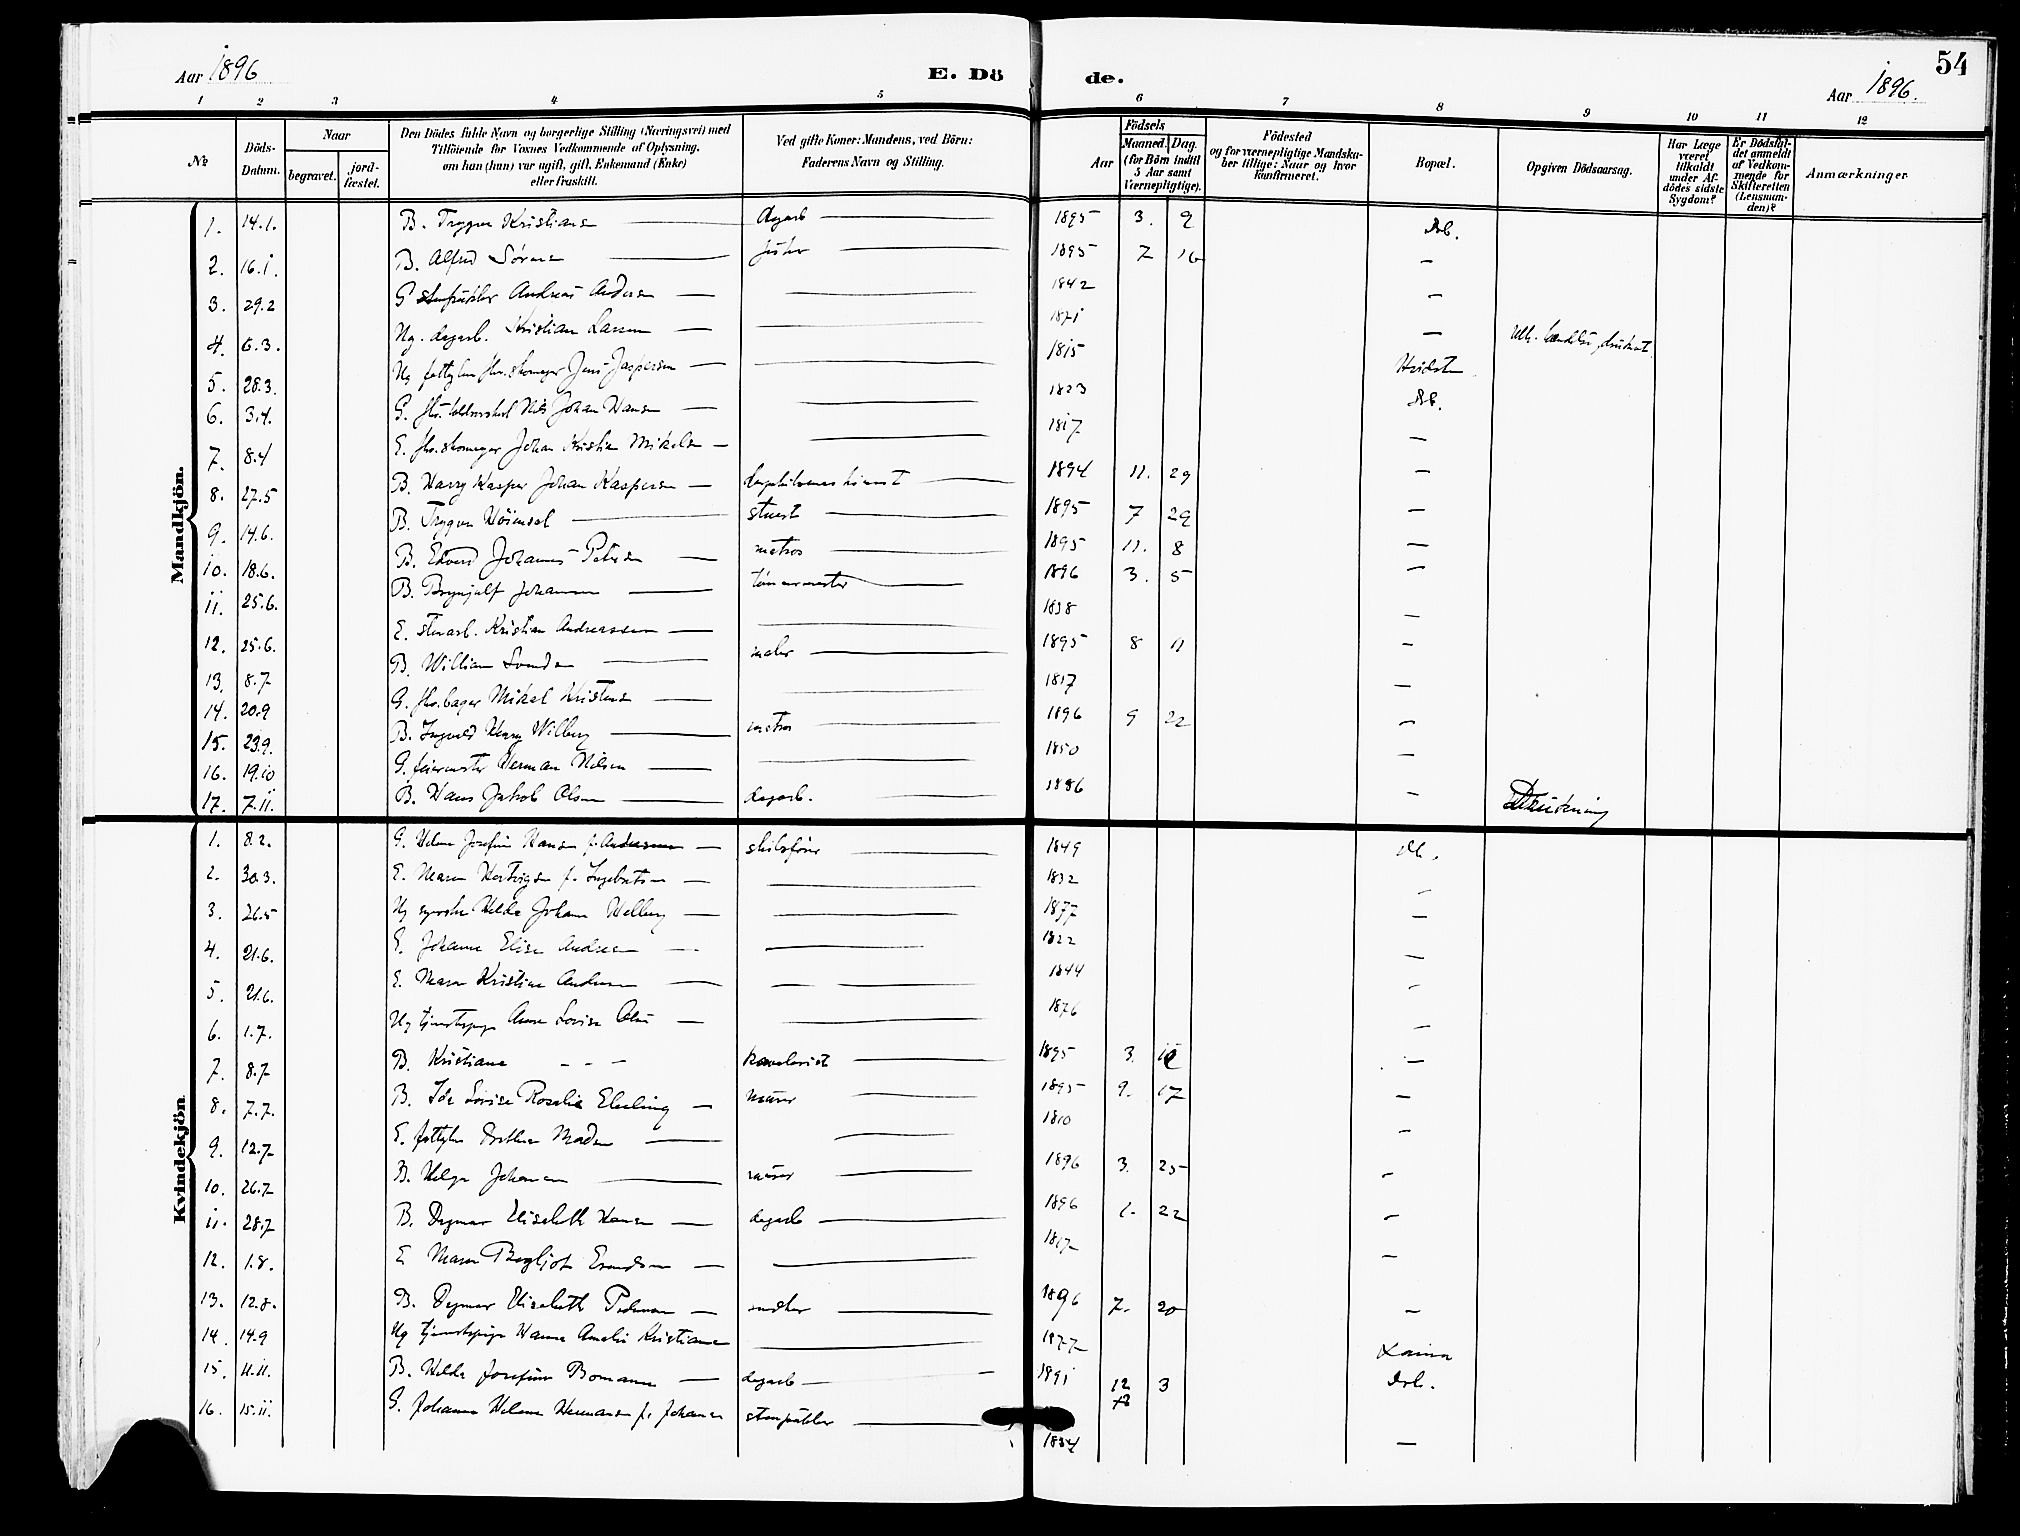 54
Aar 1896
E. Dö de.
Aar 1896.
1 2 3 4 5 6 7 8 9 10 11 12
No
Döds-Datum.
Naar
begravet.
jord-fæstet.
Den Dödes fulde Navn og borgerlige Stilling (Næringsvei) med
Tilföiende for Voxnes Vedkommende af Oplysning,
om han (hun) var ugift, gift, Enkemand (Enke)
eller fraskilt.
Ved gifte Koner: Mandens, ved Börn:
Faderens Navn og Stilling.
Födsels
Aar
Maaned. Dag.
(for Börn indtil
5 Aar samt
Værnepligtige).
Födested
og for værnepligtige Mandska-
ber tillige: Naar og hvor
konfirmeret.
Bopæl.
Opgiven Dödsaarsag.
Har Læge
været
tilkaldt
under Af-
dödes sidste
Sygdom?
Er Dödsfal-
det anmeldt
af Vedkom-
mende for
Skifteretten
(Lensman-
den)?
Anmærkninger
Mandkjön.
1. 14.1. B. Trygve Kristians — dagarb — 1895 3. 9 Drb.
2. 16.1. B. Alfred Sörens — — 1895 7 16 —
3. 29.2 G Andreas Anders — — 1842 —
4. 6.3. Ug. dagarb. Kristian Larsen — — 1871 —
5. 28.3. Ug fattiglem fhv. skomager Jens Jaspersen — — 1815
6. 3.4. G. fhv. Nils Johan Hansen — — 1823 Drb.
7. 8.4 E. fhv. skomager Johan Kristian Mikelsen — — 1817 —
8. 27.5 B. Harry Kasper Johan Kaspersen — — 1894 11. 29 —
9. 14.6. B. Trygve — stuert — 1895 7 29 —
10. 18.6. B. Edvard Johannes Petersen — matros — 1895 11. 8 —
11. 25.6. B. Brynjulf Johansen — tömmermester — 1896 3. 5 —
12. 25.6. E. stenarb. Kristian Andreassen — — 1838 —
13. 8.7 B. William Svendsen — maler — 1895 8 11 —
14. 20.9 G. fhv. bager Mikel Kristens — — 1817 —
15. 23.9. B. Ingvald Harry Wilberg — matros — 1896 9 22 —
16. 19.10 G. feiermester Herman Nilsen — — 1850 —
17. 7.11. B. Hans Jakob Olsen — dagarb. — 1886 — Drukning
Kvindekjön.
1. 8.2. G. Helene Josefine Hansen f. Andersen — skibsförer — 1849 Drb.
2. 30.3. E. Maren Hertvigsen f. Ingebretsen — — 1832 —
3. 26.5 Ug syerske Hilda Johanne Welberg — — 1877 —
4. 21.6. E. Johanne Elise Andersen — — 1822 —
5. 21.6. E. Maren Kristine Andersen — — 1844 —
6. 1.7. Ug tjenestepige Anna Lovise Olsen — — 1876 —
7. 8.7 B. Kristiane - - - — 1895 3. —
8. 7.7. B. Ida Lovise Rosalie Ebeling — murer — 1895 9. 17 —
9. 12.7 E. fattiglem Dorthea Madsen — — 1810 —
10. 26.7 B. Helga Johansen — murer — 1896 3. 25 —
11. 28.7 B. Dagmar Elisabeth Hansen — dagarb — 1896 1. 22 —
12. 1.8. E Maren Bergljot — — 1817 —
13. 12.8. B. Dagmar Elisabeth Pedersen — — 1896 7. 20 —
14. 14.9 Ug tjenestepige Hanna Amalie Kristiansen — 1877
15. 11.11. B. Hilda Josefine Bomann — dagarb — 1891 12 3 Drb.
16. 15.11. G. Johanne Helene Hermansen f. Johansen — 1834 —